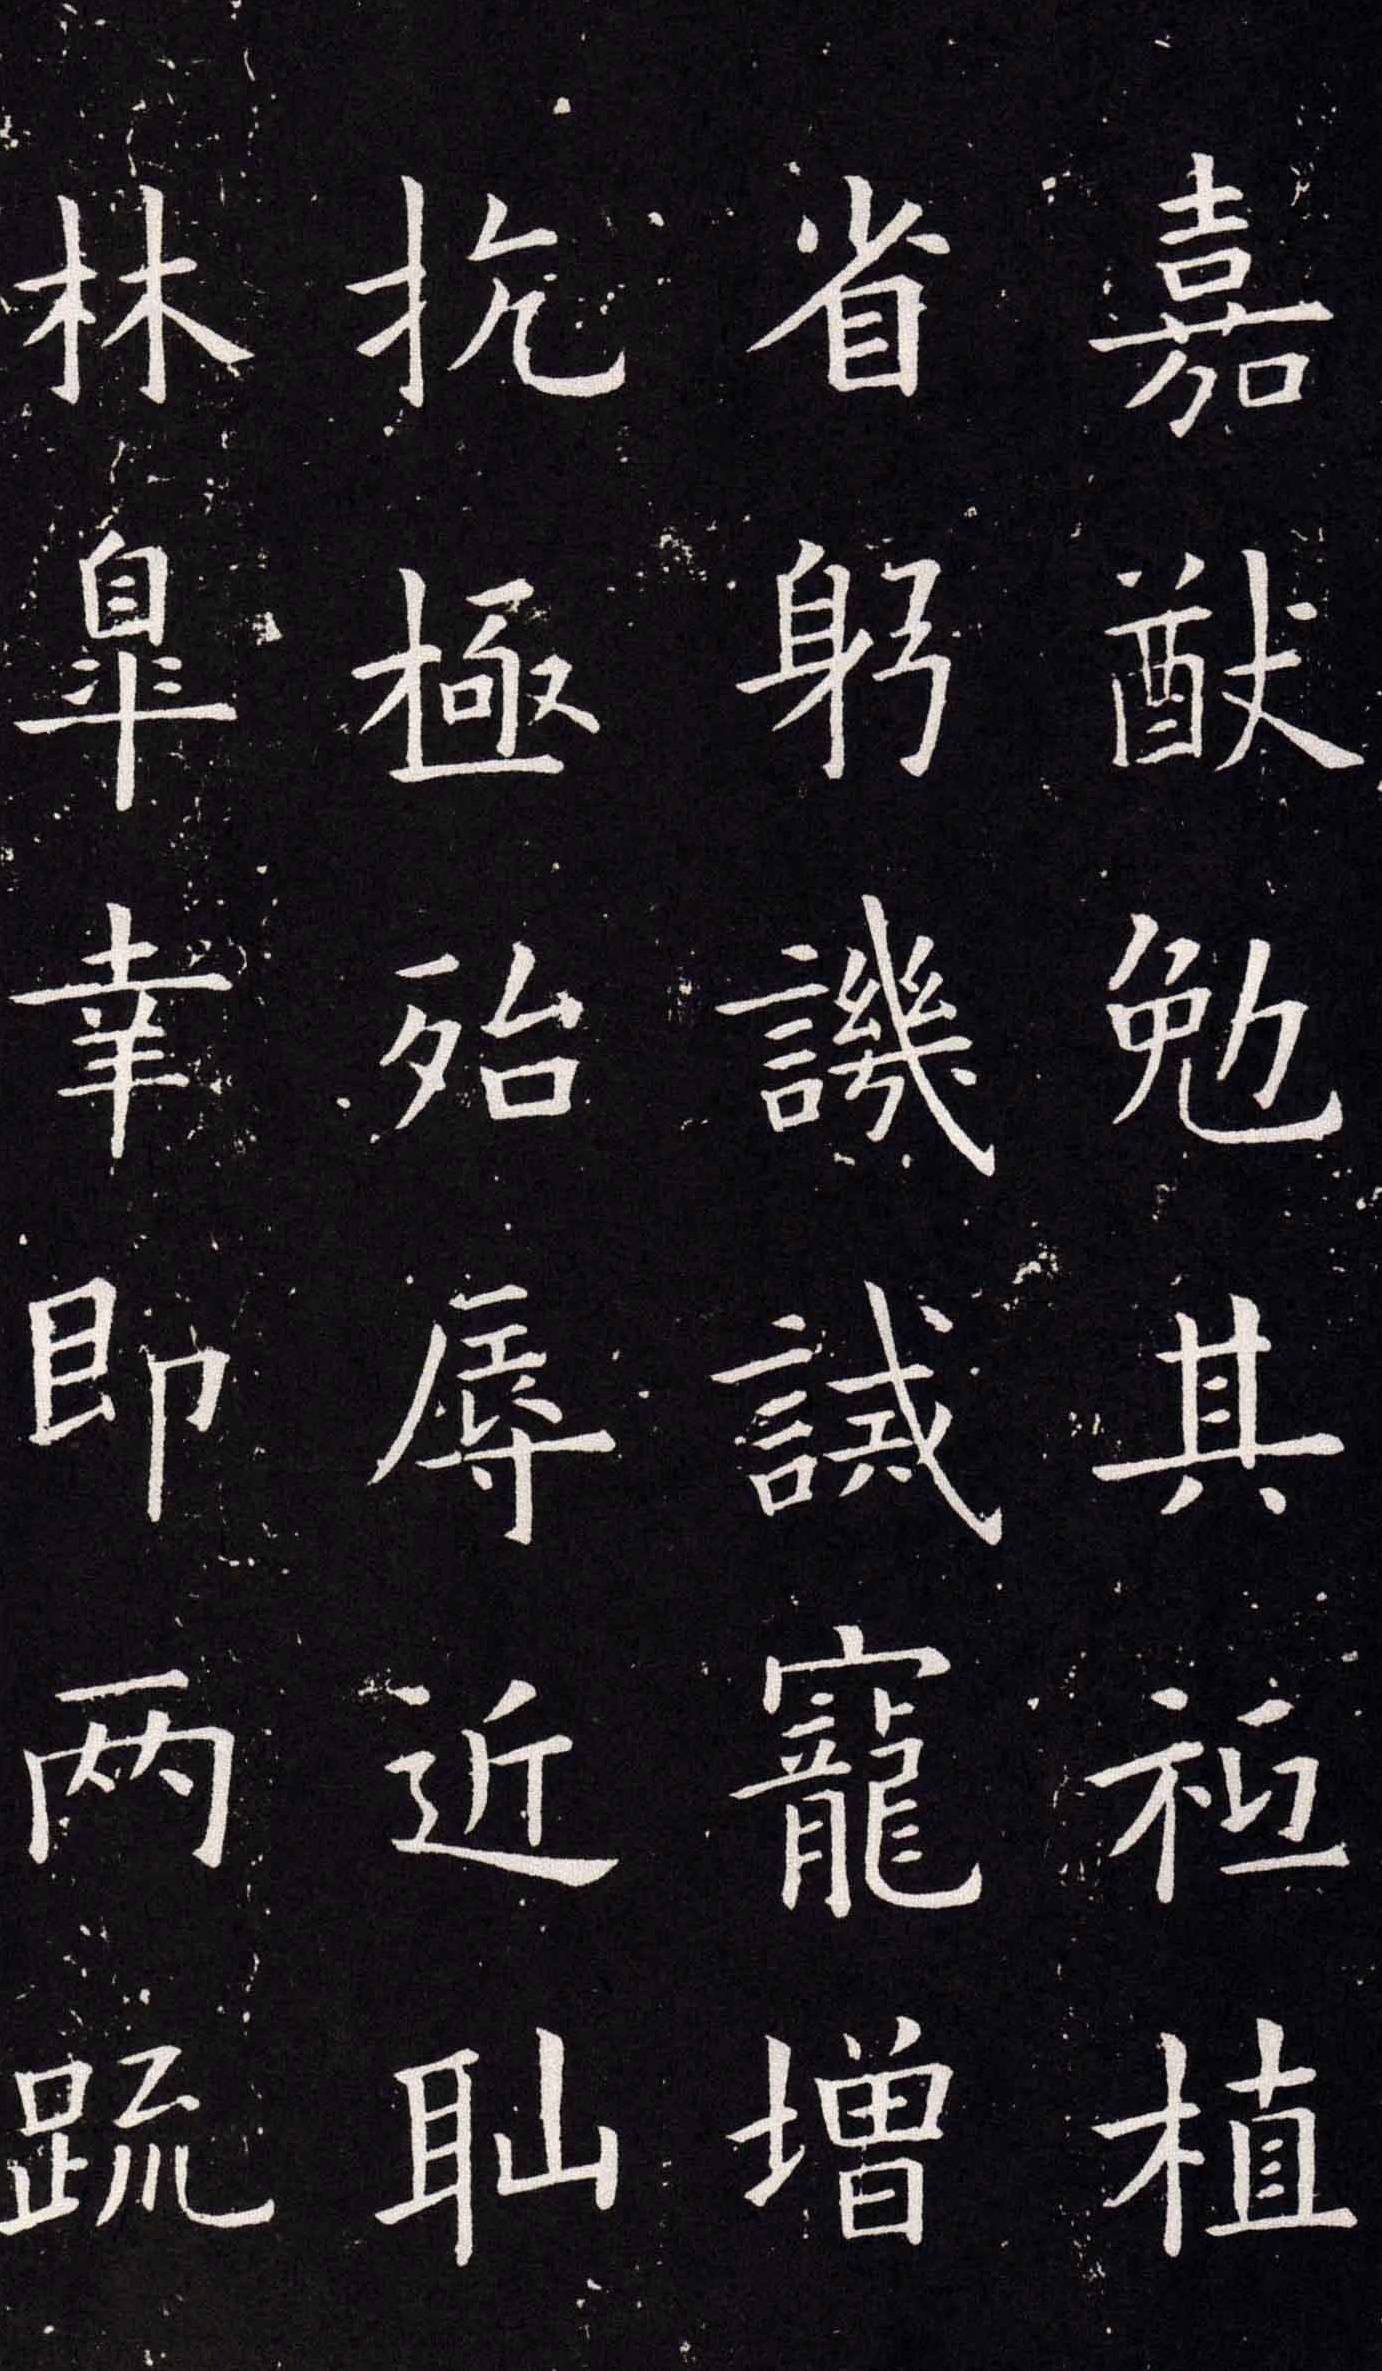 嘉猷勉其祗植
省躬譏誡寵增
抗極殆辱近耻
林皋幸即两疏